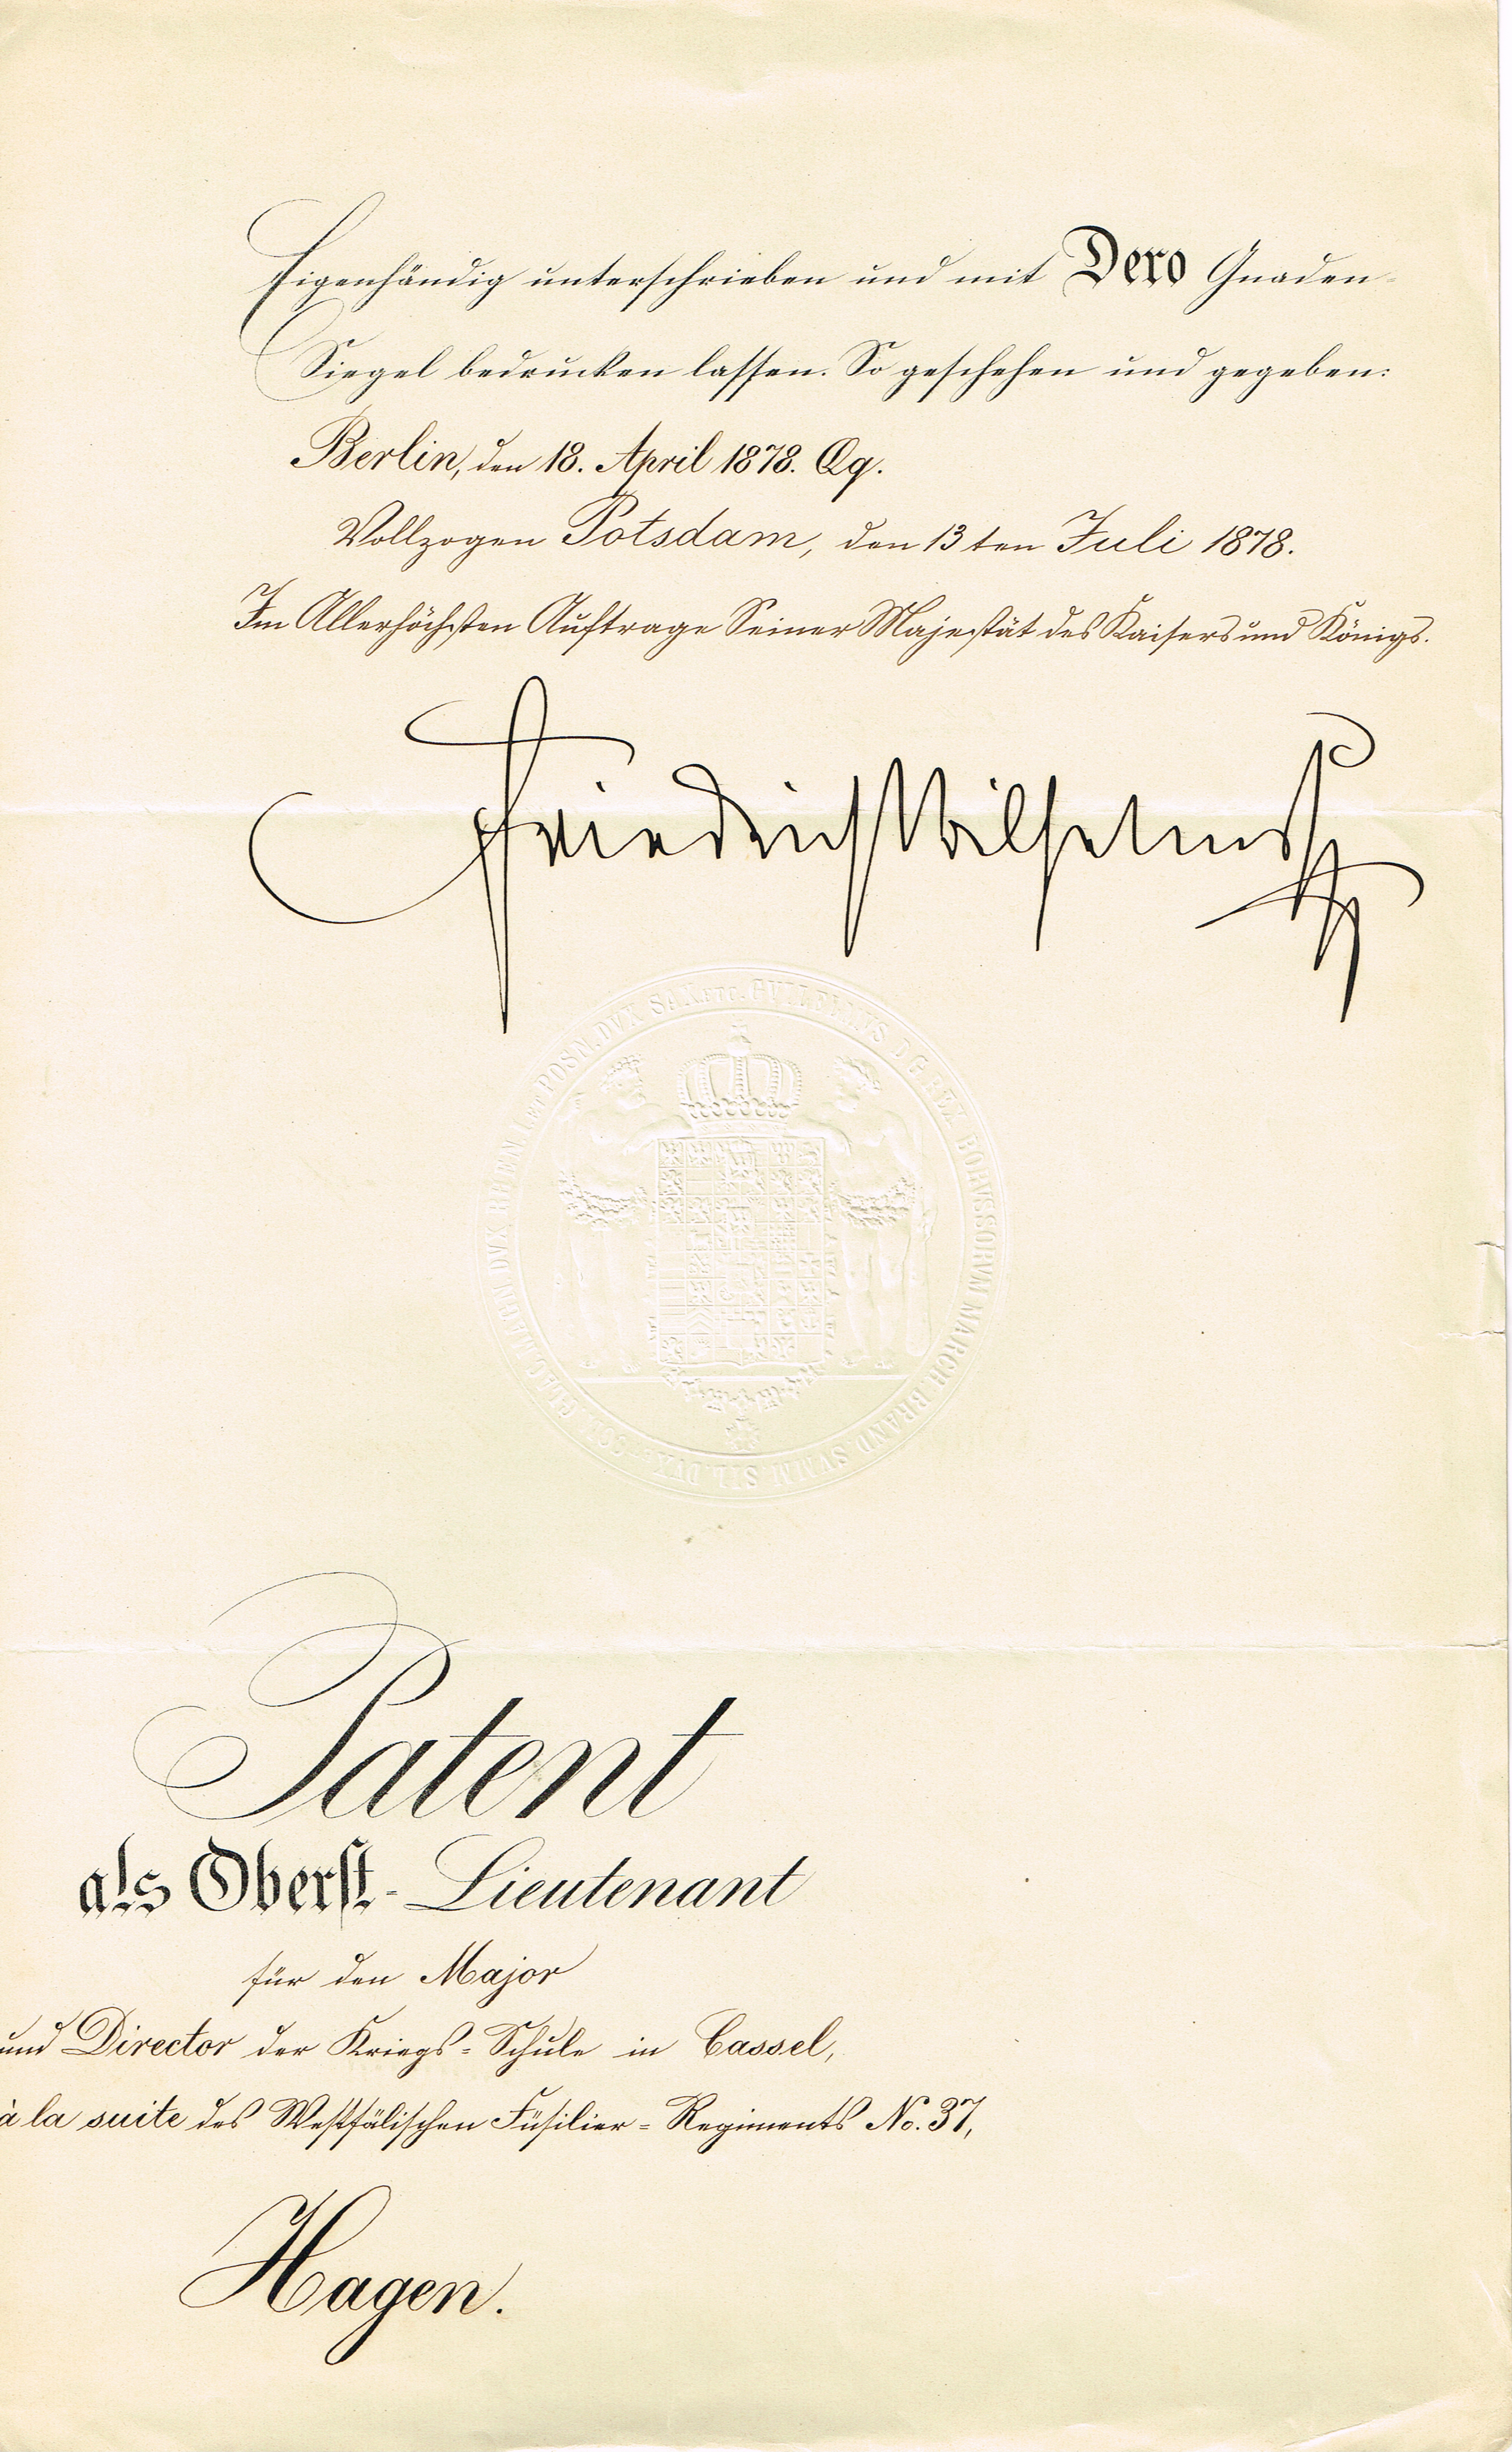 Eigenhändig unterschrieben und mit Dero Gnaden-
Siegel bedrucken lassen. So geschehen und gegeben:
Berlin, den 18. April 1878. Qg.
Vollzogen Potsdam, den 13ten Juli 1878.
Im Allerhöchsten Auftrage Seiner Majestät des Kaisers und Königs.
Friedrich Wilhelm
GVILELMVS D.G. REX BORVSSORVM MARCH. BRAND. SVMM. SIL. DVX POSN. DVX SAX. ETC.
Patent
als Oberst-Lieutenant
für den Major
und Director der Kriegs-Schule in Cassel,
à la suite des Westfälischen Füsilier-Regiments No. 37,
Hagen.